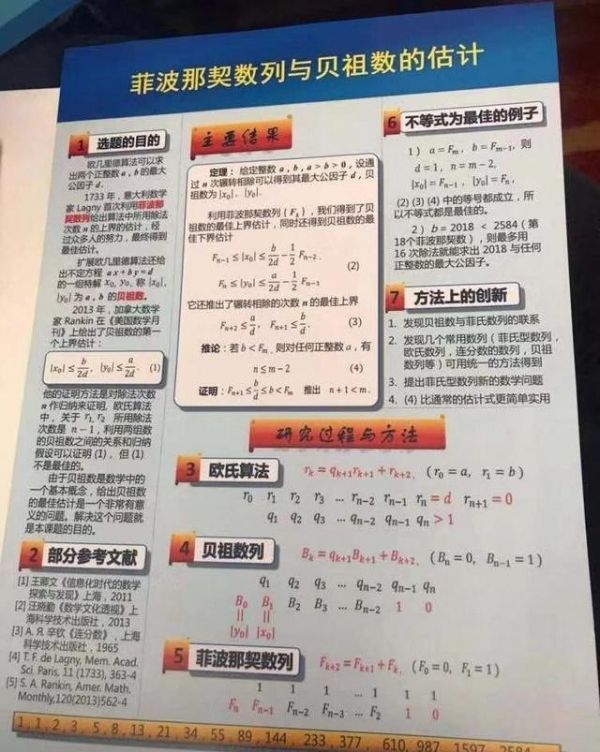 菲波那契数列与贝祖数的估计
1 选题的目的
欧几里德算法可以求
出两个正整数 a, b 的最大
公因子 d.
1733 年，意大利数学
家 Lagny 首次利用菲波那
契数列给出算法中所用除法
次数 n 的上界的估计，经
过众多人的努力，最终得到
最佳估计。
扩展欧几里德算法还给
出不定方程 ax+by=d
的一组特解 x₀, y₀, 称 |x₀|,
|y₀| 为 a, b 的贝祖数。
2013 年，加拿大数学
家 Rankin 在《美国数学月
刊》上给出了贝祖数的第一
个上界估计：
|x₀| ≤ b/2d, |y₀| ≤ a/2d. (1)
他的证明方法是对除法次数
n 作归纳来证明, 欧氏算法
中，关于 r₁, r₂ 所用除法
次数是 n − 1，利用两组数
的贝祖数之间的关系和归纳
假设可以证明 (1)，但 (1)
不是最佳的。
由于贝祖数是数学中的
一个基本概念，给出贝祖数
的最佳估计是一个非常有意
义的问题。解决这个问题就
是本课题的目的。
2 部分参考文献
[1] 王卿文《信息化时代的数学
探索与发现》上海，2011
[2] 汪晓勤《数学文化透视》上
海科学技术出版社，2013
[3] А. Я. 辛钦《连分数》，上海
科学技术出版社，1965
[4] T. F. de Lagny, Mem. Acad.
Sci. Paris, 11 (1733), 363-4
[5] S. A. Rankin, Amer. Math.
Monthly,120(2013)562-4
主要结果
定理：给定整数 a, b, a > b > 0, 设通
过 n 次辗转相除可以得到其最大公因子 d，贝
祖数为 |x₀|, |y₀|.
利用菲波那契数列 (Fₖ)，我们得到了贝
祖数的最佳上界估计，同时还得到贝祖数的最
佳下界估计
Fₙ₋₁ ≤ |x₀| ≤ b/2d − 1/2 Fₙ₋₂.
(2)
Fₙ ≤ |y₀| ≤ a/2d − 1/2 Fₙ₋₁.
它还推出了辗转相除的次数 n 的最佳上界
Fₙ₊₂ ≤ a/d, Fₙ₊₁ ≤ b/d. (3)
推论：若 b < Fₘ 则对任何正整数 a，有
n ≤ m − 2 (4)
证明：Fₙ₊₁ ≤ b/d ≤ b < Fₘ 推出 n + 1 < m.
6 不等式为最佳的例子
1) a = Fₘ, b = Fₘ₋₁, 则
d = 1, n = m − 2,
|x₀| = Fₙ₋₁, |y₀| = Fₙ,
(2) (3) (4) 中的等号都成立，所
以不等式都是最佳的。
2) b = 2018 < 2584 (第
18个菲波那契数)，则最多用
16 次除法就能求出 2018 与任何
正整数的最大公因子。
7 方法上的创新
1. 发现贝祖数与菲氏数列的联系
2. 发现几个常用数列（菲氏型数列，
欧氏数列，连分数的数列，贝祖
数列等）可用统一的方法得到
3. 提出菲氏型数列新的数学问题
4. (4) 比通常的估计式更简单实用
研究过程与方法
3 欧氏算法 rₖ = qₖ₊₁rₖ₊₁ + rₖ₊₂, (r₀ = a, r₁ = b)
r₀ r₁ r₂ r₃ ... rₙ₋₂ rₙ₋₁ rₙ = d rₙ₊₁ = 0
q₁ q₂ q₃ ... qₙ₋₂ qₙ₋₁ qₙ > 1
4 贝祖数列 Bₖ = qₖ₊₁Bₖ₊₁ + Bₖ₊₂, (Bₙ = 0, Bₙ₋₁ = 1)
q₁ q₂ q₃ ... qₙ₋₂ qₙ₋₁ qₙ
B₀ B₁ B₂ B₃ ... Bₙ₋₂ 1 0
|| ||
|y₀| |x₀|
5 菲波那契数列 Fₖ₊₂ = Fₖ₊₁ + Fₖ, (F₀ = 0, F₁ = 1)
1 1 1 ... 1 1 1
Fₙ Fₙ₋₁ Fₙ₋₂ Fₙ₋₃ ... F₂ 1 0
1, 1, 2, 3, 5, 8, 13, 21, 34, 55, 89, 144, 233, 377, 610, 987, 1597, 2584